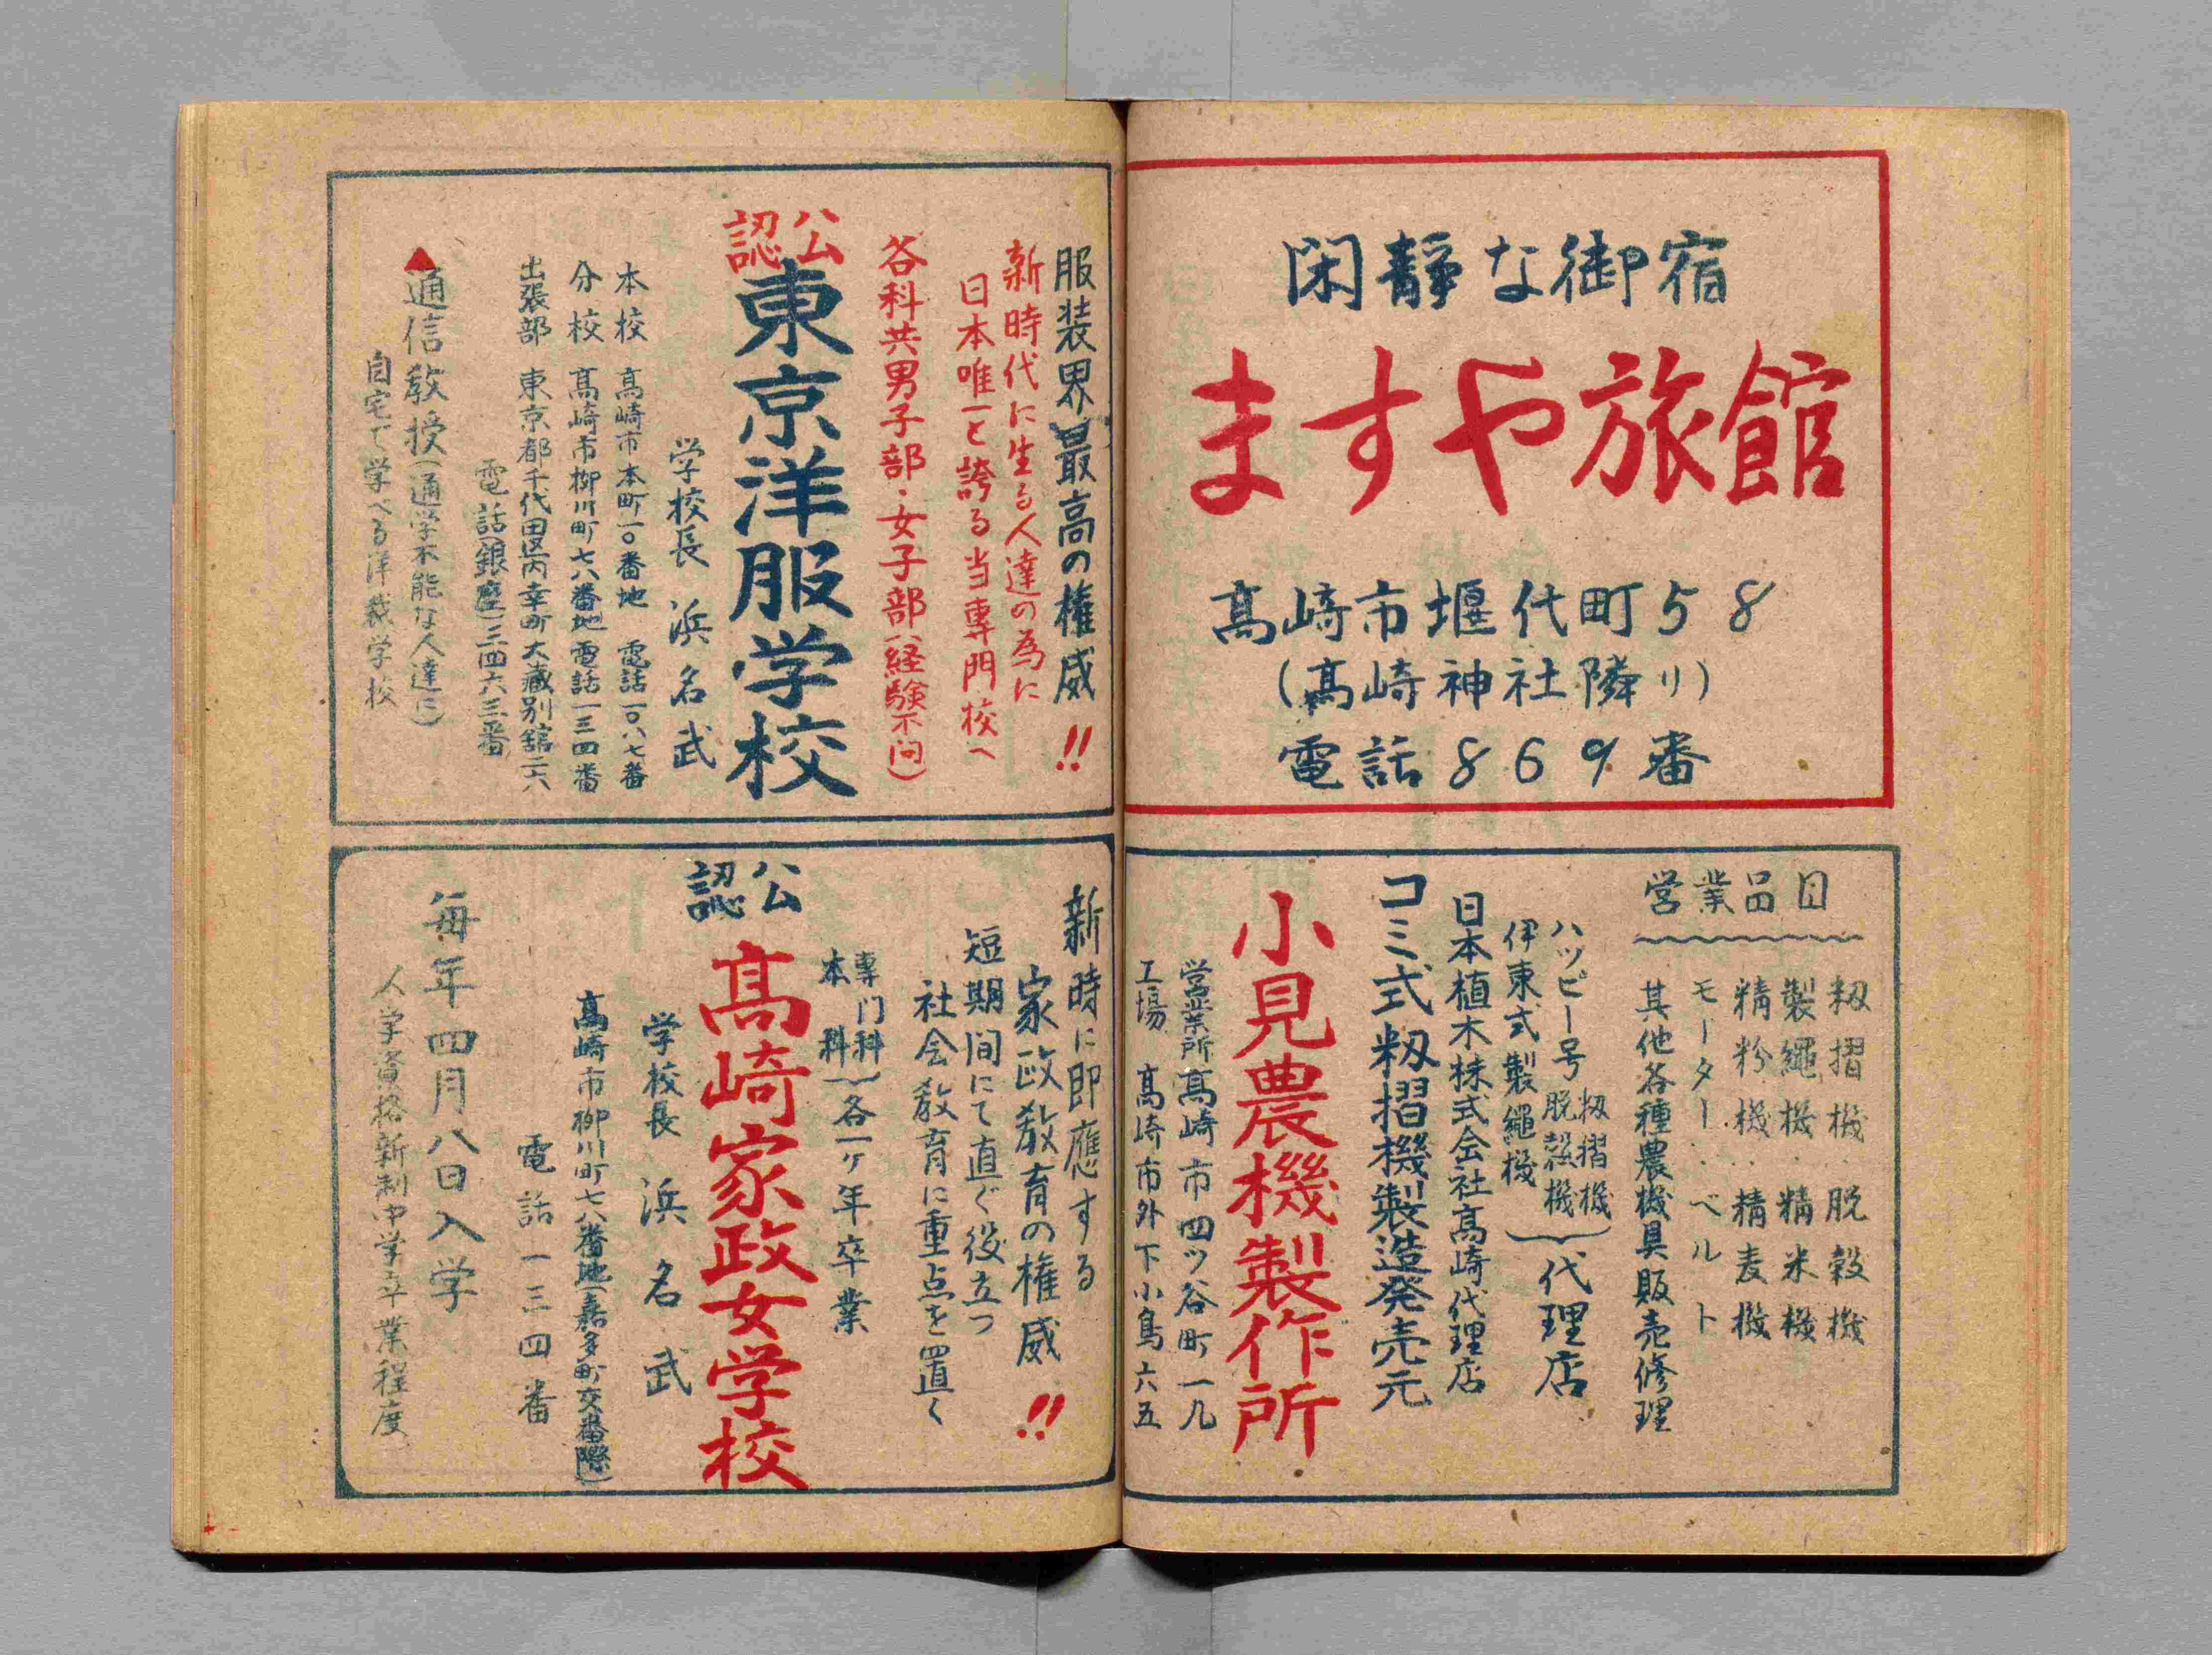 閑靜な御宿
ますや旅館
髙崎市堰代町58
(髙崎神社隣リ)
電話869番
営業品目
籾摺機・脱穀機
製繩機・精米機
精粉機・精麦機
モーター・ベルト
其他各種農機具販売修理
ハッピー号 籾摺機 脱穀機
伊東式製繩機
代理店
日本植木株式会社髙崎代理店
コミ式籾摺機製造発売元
小見農機製作所
営業所 髙崎市四ツ谷町一九
工場 髙崎市外下小鳥六五
服装界最高の権威!!
新時代に生る人達の為に
日本唯一と誇る当専門校へ
各科共男子部・女子部(経験不問)
公認
東京洋服学校
学校長 浜名武
本校 髙崎市本町一〇番地 電話一〇八七番
分校 髙崎市柳川町七八番地 電話一三四番
出張部 東京都千代田区内幸町大蔵別舘二六
電話(銀座)三四六三番
▲通信教授(通学不能な人達に)
自宅で学べる洋裁学校
新時に即應する
家政教育の権威!!
短期間にて直ぐ役立つ
社会教育に重点を置く
専门科
本科
各一ヶ年卒業
公認
髙崎家政女学校
学校長 浜名武
髙崎市柳川町七八番地(嘉多町交番際)
電話一三四番
毎年四月八日入学
入学資格新制中学卒業程度